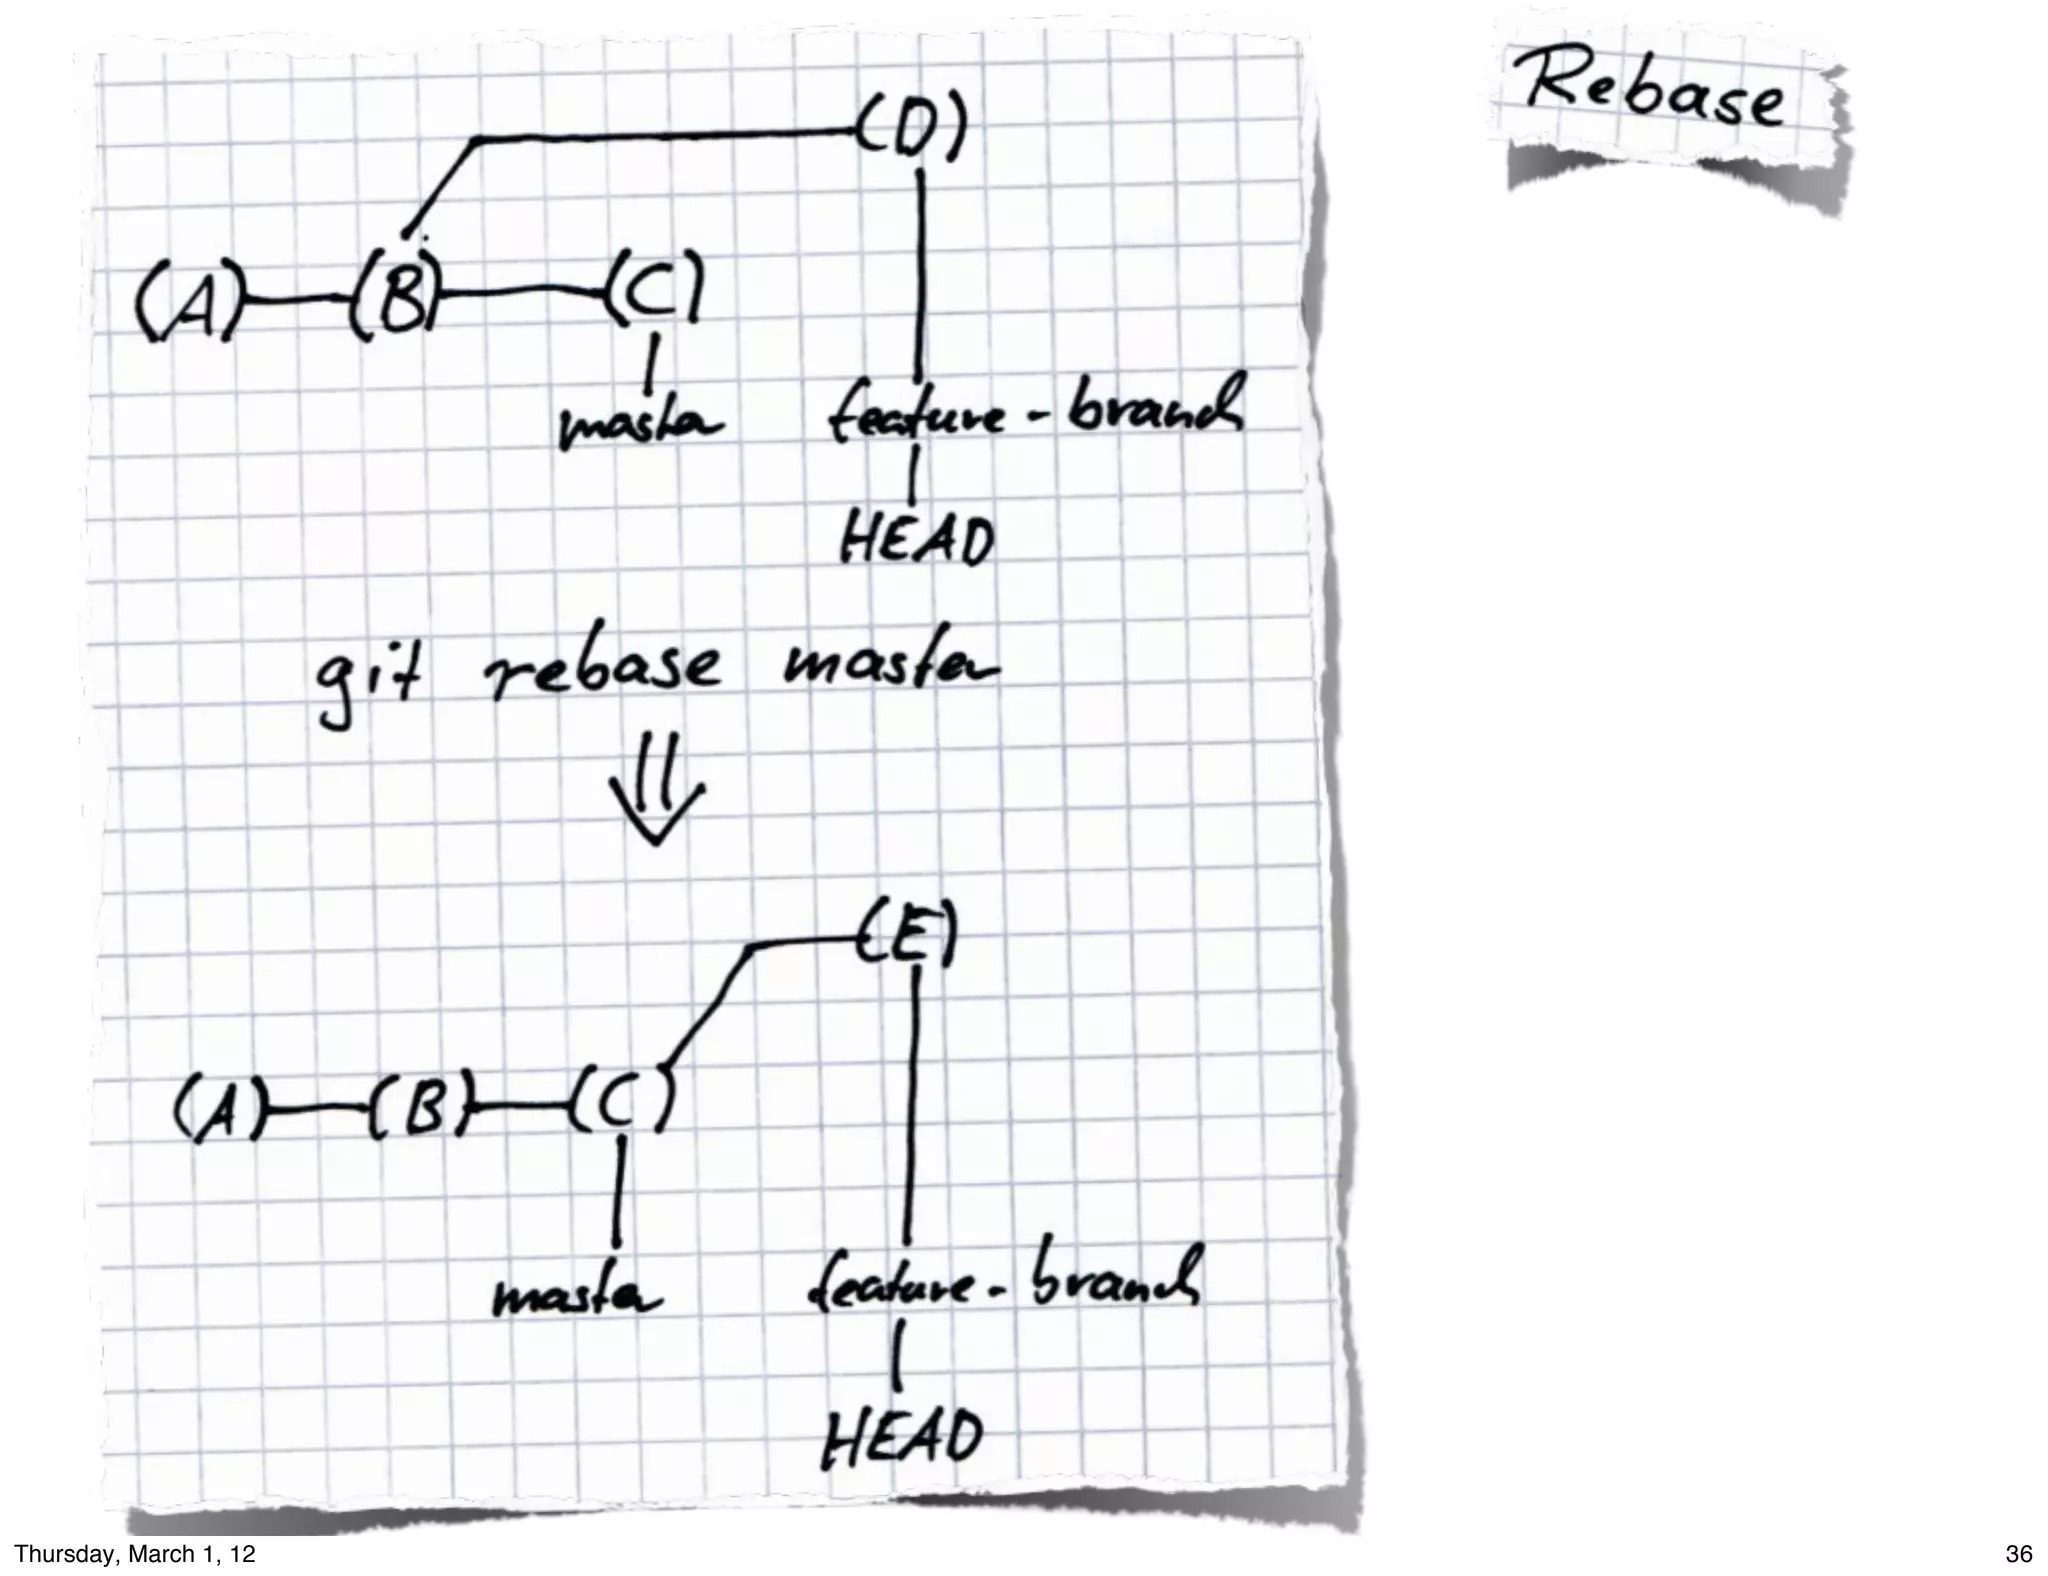 Rebase
(D)
(A) (B) (C)
master feature-branch
HEAD
git rebase master
(E)
(A) (B) (C)
master feature-branch
HEAD
Thursday, March 1, 12
36